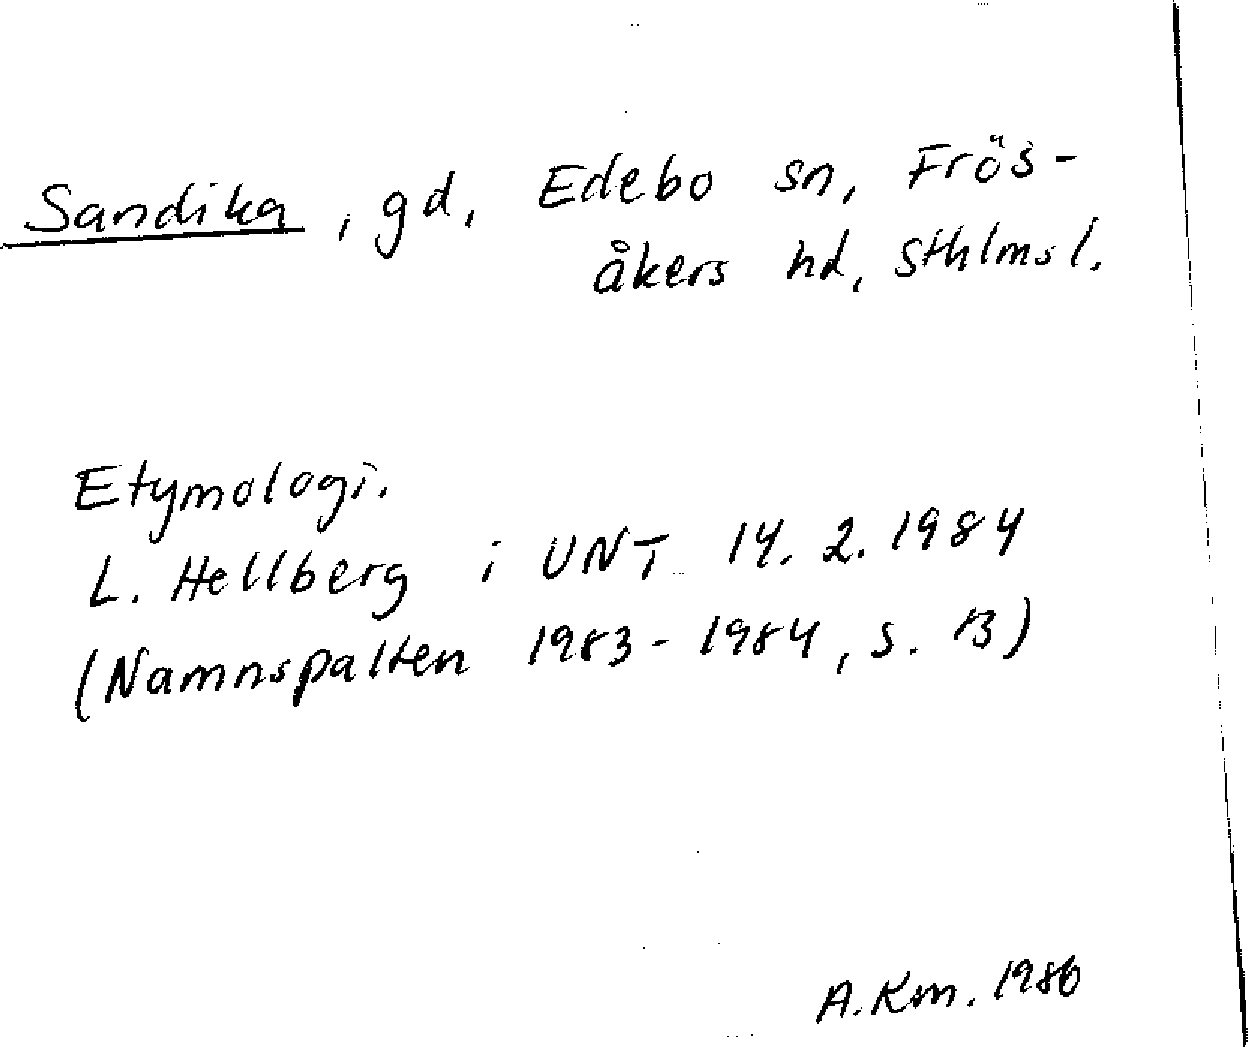 Sandika, gd, Edebo sn, Frös-
åkers hd, Sthlms l.
Etymologi.
L. Hellberg i UNT 14. 2. 1984
(Namnspalten 1983-1984, s. 13)
A. Km. 1986